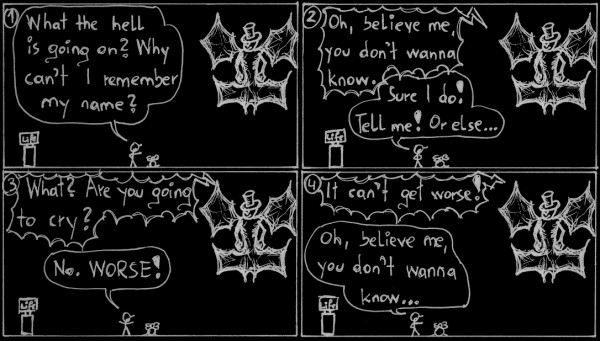 1
What the hell
is going on? Why
can't I remember
my name?
Life
2
Oh, believe me,
you don't wanna
know.
Sure I do!
Tell me! Or else...
Life
3
What? Are you going
to cry?
No. WORSE!
Life
4
It can't get worse!
Oh, believe me,
you don't wanna
know...
Life